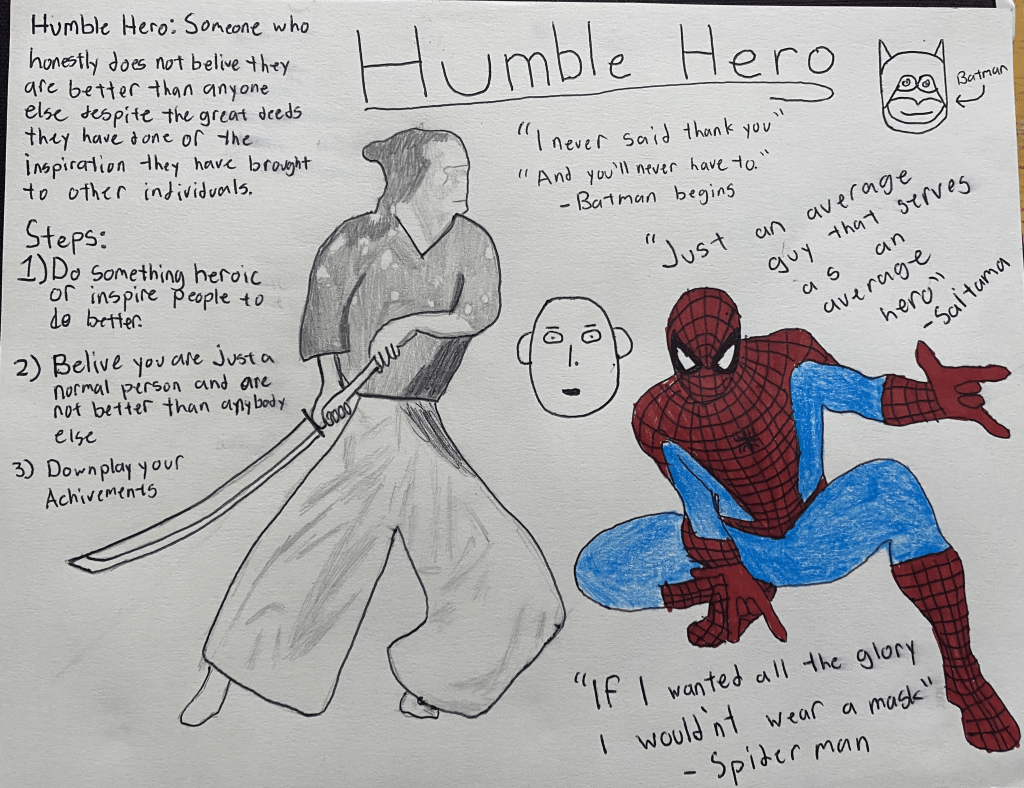 Humble Hero: Someone who
honestly does not belive they
are better than anyone
else despite the great deeds
they have done or the
inspiration they have brought
to other individuals.
Steps:
1) Do something heroic
or inspire people to
do better.
2) Belive you are just a
normal person and are
not better than anybody
else
3) Downplay your
Achivements
Humble Hero
Batman
"I never said thank you"
"And you'll never have to."
- Batman begins
"Just an average
guy that serves
as an
average
hero"
- Saitama
"If I wanted all the glory
I would'nt wear a mask"
- Spider man